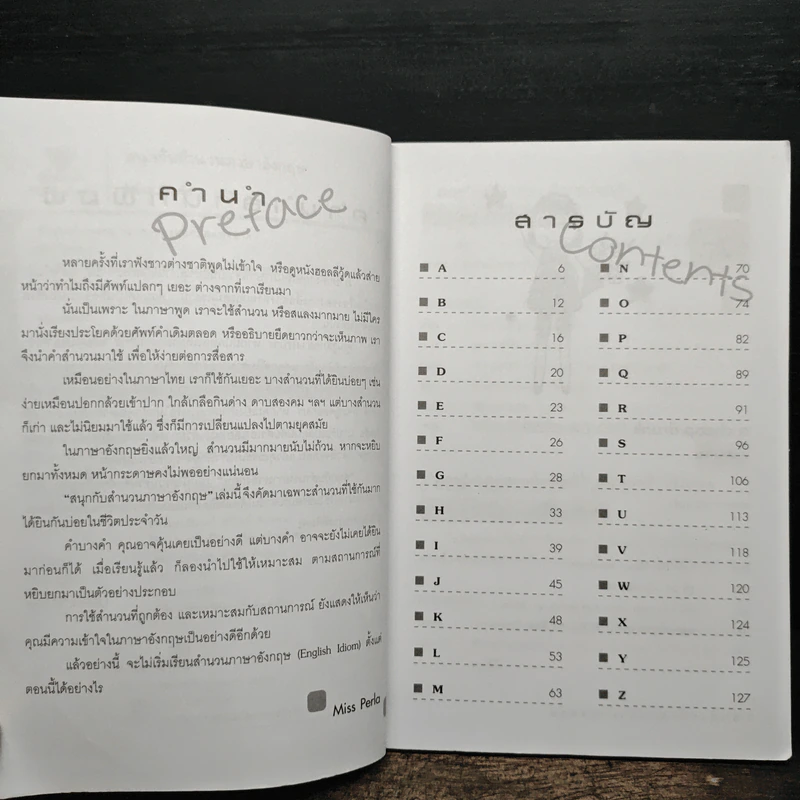 คำนำ
Preface
หลายครั้งที่เราฟังชาวต่างชาติพูดไม่เข้าใจ หรือดูหนังฮอลลีวู้ดแล้วส่าย
หน้าว่าทำไมถึงมีศัพท์แปลกๆ เยอะ ต่างจากที่เราเรียนมา
นั่นเป็นเพราะ ในภาษาพูด เราจะใช้สำนวน หรือสแลงมากมาย ไม่มีใคร
มานั่งเรียงประโยคด้วยศัพท์คำเดิมตลอด หรืออธิบายยืดยาวกว่าจะเห็นภาพ เรา
จึงนำคำสำนวนมาใช้ เพื่อให้ง่ายต่อการสื่อสาร
เหมือนอย่างในภาษาไทย เราก็ใช้กันเยอะ บางสำนวนที่ได้ยินบ่อยๆ เช่น
ง่ายเหมือนปอกกล้วยเข้าปาก ใกล้เกลือกินด่าง ดาบสองคม ฯลฯ แต่บางสำนวน
ก็เก่า และไม่นิยมมาใช้แล้ว ซึ่งก็มีการเปลี่ยนแปลงไปตามยุคสมัย
ในภาษาอังกฤษยิ่งแล้วใหญ่ สำนวนมีมากมายนับไม่ถ้วน หากจะหยิบ
ยกมาทั้งหมด หน้ากระดาษคงไม่พออย่างแน่นอน
"สนุกกับสำนวนภาษาอังกฤษ" เล่มนี้ จึงคัดมาเฉพาะสำนวนที่ใช้กันมาก
ได้ยินกันบ่อยในชีวิตประจำวัน
คำบางคำ คุณอาจคุ้นเคยเป็นอย่างดี แต่บางคำ อาจจะยังไม่เคยได้ยิน
มาก่อนก็ได้ เมื่อเรียนรู้แล้ว ก็ลองนำไปใช้ให้เหมาะสม ตามสถานการณ์ที่
หยิบยกมาเป็นตัวอย่างประกอบ
การใช้สำนวนที่ถูกต้อง และเหมาะสมกับสถานการณ์ ยังแสดงให้เห็นว่า
คุณมีความเข้าใจในภาษาอังกฤษเป็นอย่างดีอีกด้วย
แล้วอย่างนี้ จะไม่เริ่มเรียนสำนวนภาษาอังกฤษ (English Idiom) ตั้งแต่
ตอนนี้ได้อย่างไร
Miss Perla
สารบัญ
Contents
A 6
B 12
C 16
D 20
E 23
F 26
G 28
H 33
I 39
J 45
K 48
L 53
M 63
N 70
O 74
P 82
Q 89
R 91
S 96
T 106
U 113
V 118
W 120
X 124
Y 125
Z 127